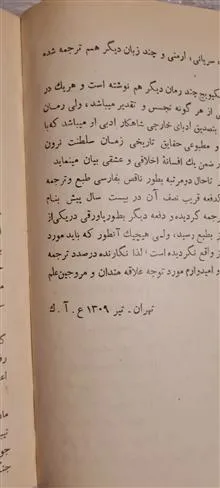 ، سریانی، ارمنی و چند زبان دیگر همم ترجمه شده
کیویچ چند رمان دیگر هم نوشته است و هریك در
ی از هر گونه تجسس و تقدیر میباشد، ولی رمان
بتصدیق ادبای خارجی شاهکار ادبی او میباشد که با
و مطبوعی حقایق تاریخی زمان سلطنت نرون
ر ضمن یك افسانهٔ اخلاقی و عشقی بیان مینماید
تاحال دومرتبه بطور ناقص بفارسی طبع و ترجمه
کدفعه قریب نصف آن در بیست سال پیش بنام
رجمه گردیده و دفعه دیگر بطور پاورقی در یکی از
بطبع رسید، ولی هیچیك آنطور که باید مورد
واقع نگردیده است؛ لذا نگارنده درصدد ترجمه
و امیدوارم مورد توجه علاقه مندان و مروجین علم
تهران ـ تیر ۱۳۰۹ ع . آ . ك